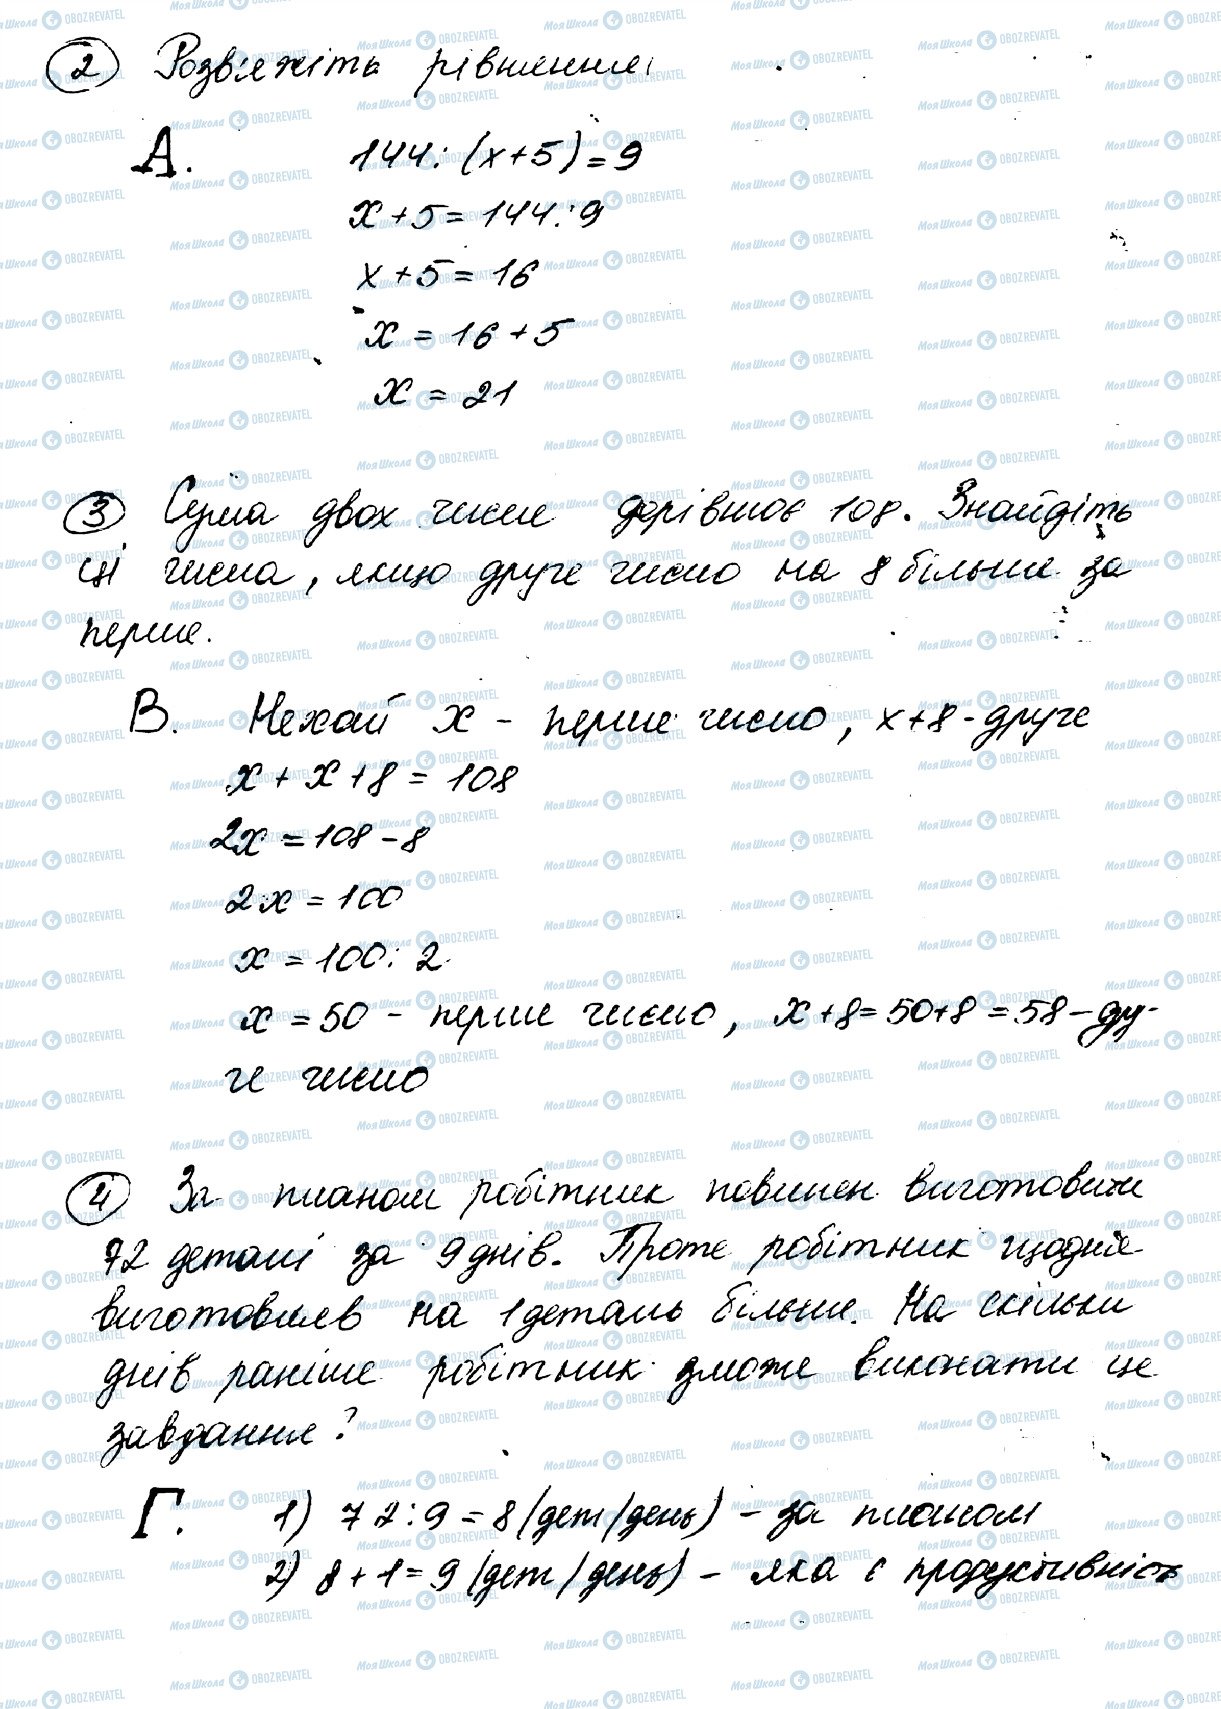 2 Розв'яжіть рівняння
А. 144 : (x + 5) = 9
x + 5 = 144 : 9
x + 5 = 16
x = 16 + 5
x = 21
3 Сума двох чисел дорівнює 108. Знайдіть
ці числа, якщо друге число на 8 більше за
перше.
В. Нехай x - перше число, x + 8 - друге
x + x + 8 = 108
2x = 108 - 8
2x = 100
x = 100 : 2
x = 50 - перше число, x + 8 = 50 + 8 = 58 - дру-
ге число
4 За планом робітник повинен виготовити
72 деталі за 9 днів. Проте робітник щодня
виготовляв на 1 деталь більше. На скільки
днів раніше робітник зможе виконати це
завдання?
Г. 1) 72 : 9 = 8 (дет/день) - за планом
2) 8 + 1 = 9 (дет/день) - яка є продуктивність
МояШкола OBOZREVATEL